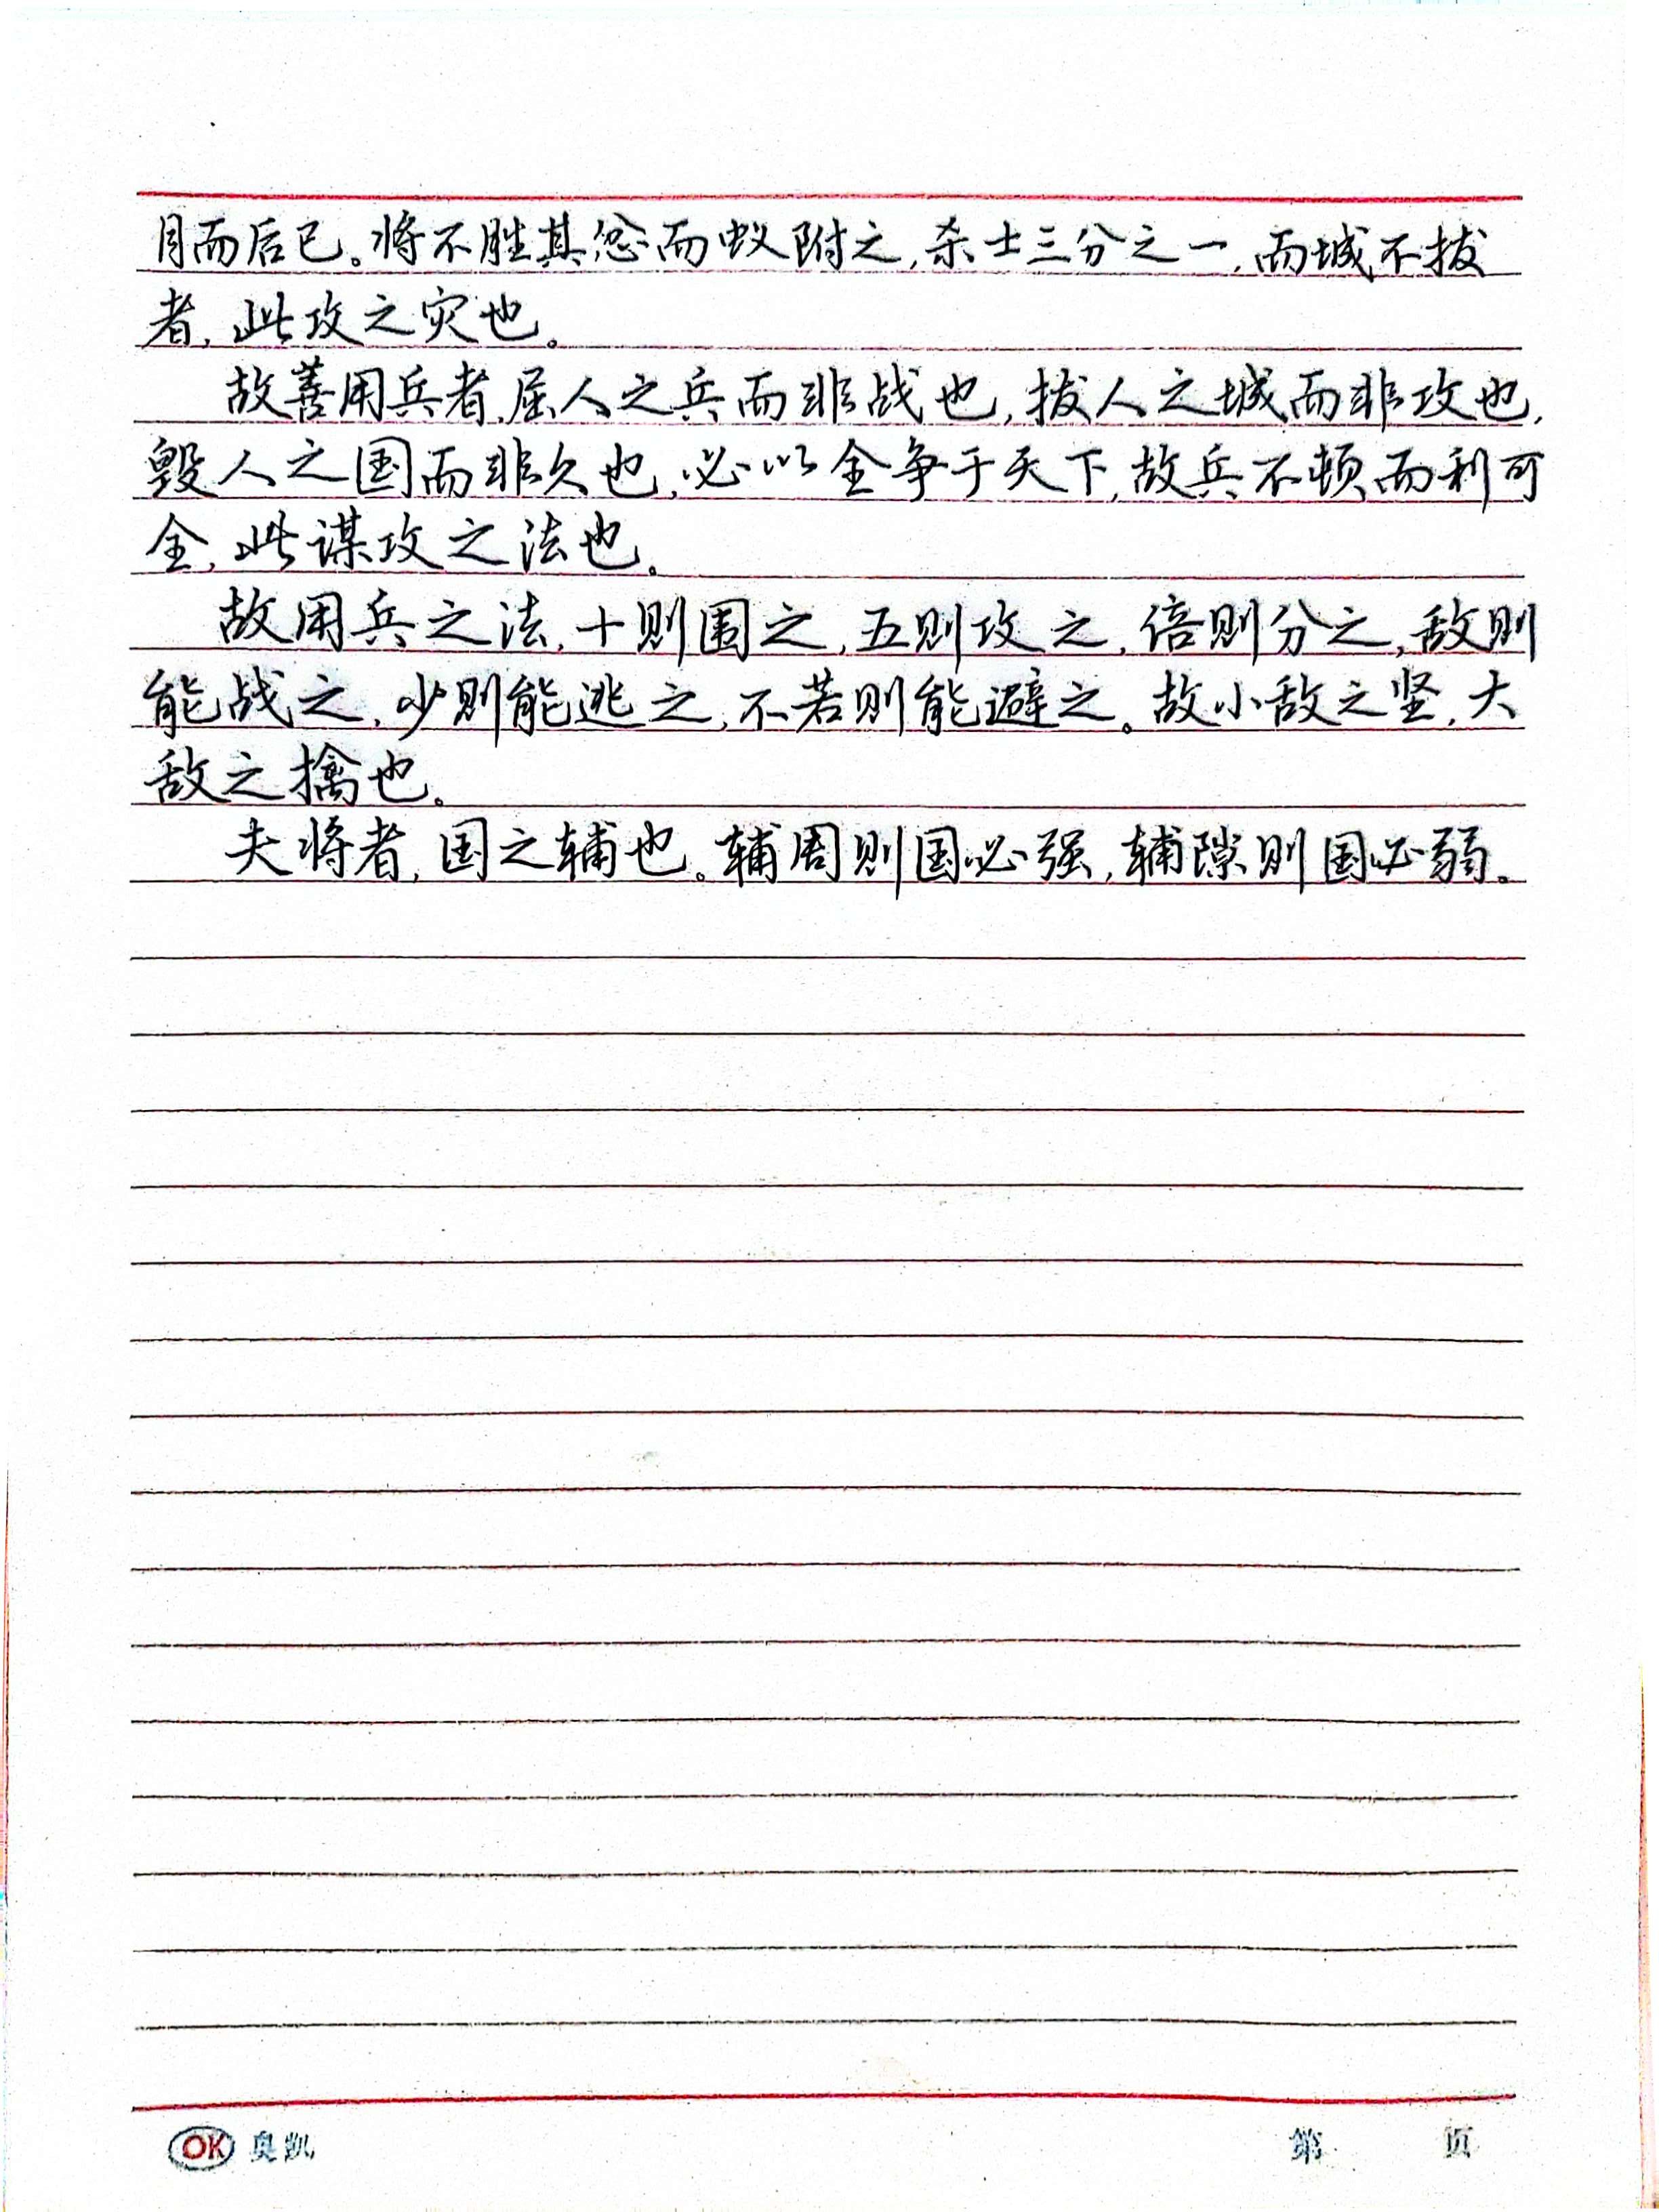 月而后已。将不胜其忿而蚁附之,杀士三分之一,而城不拔
者,此攻之灾也。
故善用兵者,屈人之兵而非战也,拔人之城而非攻也,
毁人之国而非久也,必以全争于天下,故兵不顿而利可
全,此谋攻之法也。
故用兵之法,十则围之,五则攻之,倍则分之,敌则
能战之,少则能逃之,不若则能避之。故小敌之坚,大
敌之擒也。
夫将者,国之辅也。辅周则国必强,辅隙则国必弱。
OK 奥凯 第 页